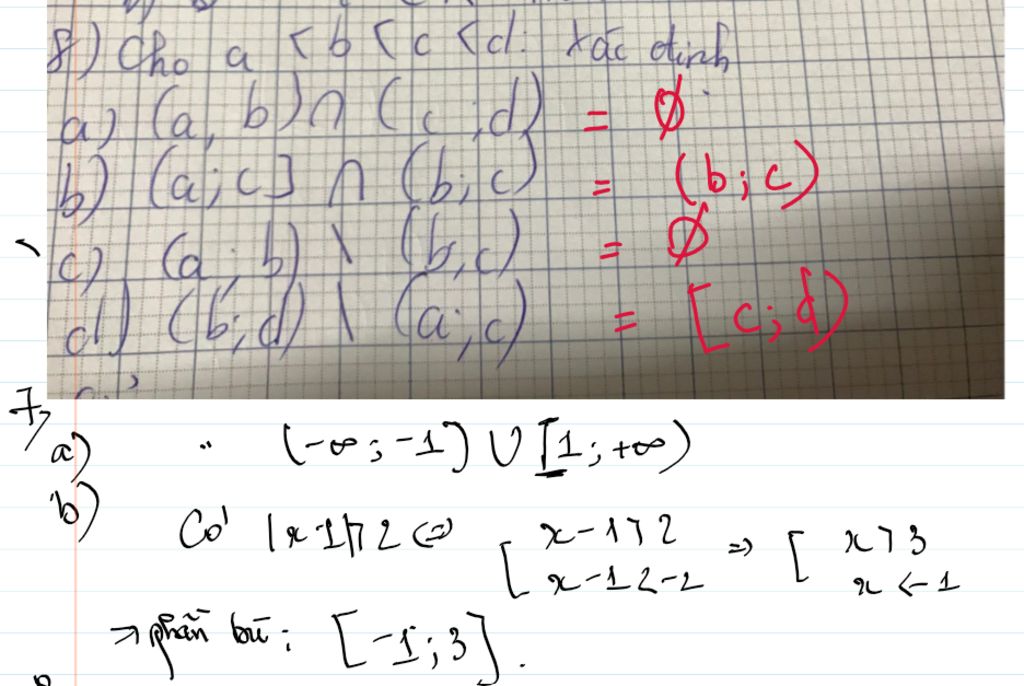 8) Cho a < b < c < d. xác định
a) (a, b) ∩ (c ; d) = ∅
b) (a ; c] ∩ (b ; c) = (b ; c)
c) (a ; b) \ (b, c) = ∅
d) (b ; d) \ (a ; c) = [c ; d)
7,
a) (-∞ ; -1] ∪ [1 ; +∞)
b)
Có |x-1|>2 ⇔ [ x-1>2 ⇒ [ x>3
x-1<-2 x<-1
→ phần bù : [-1 ; 3].